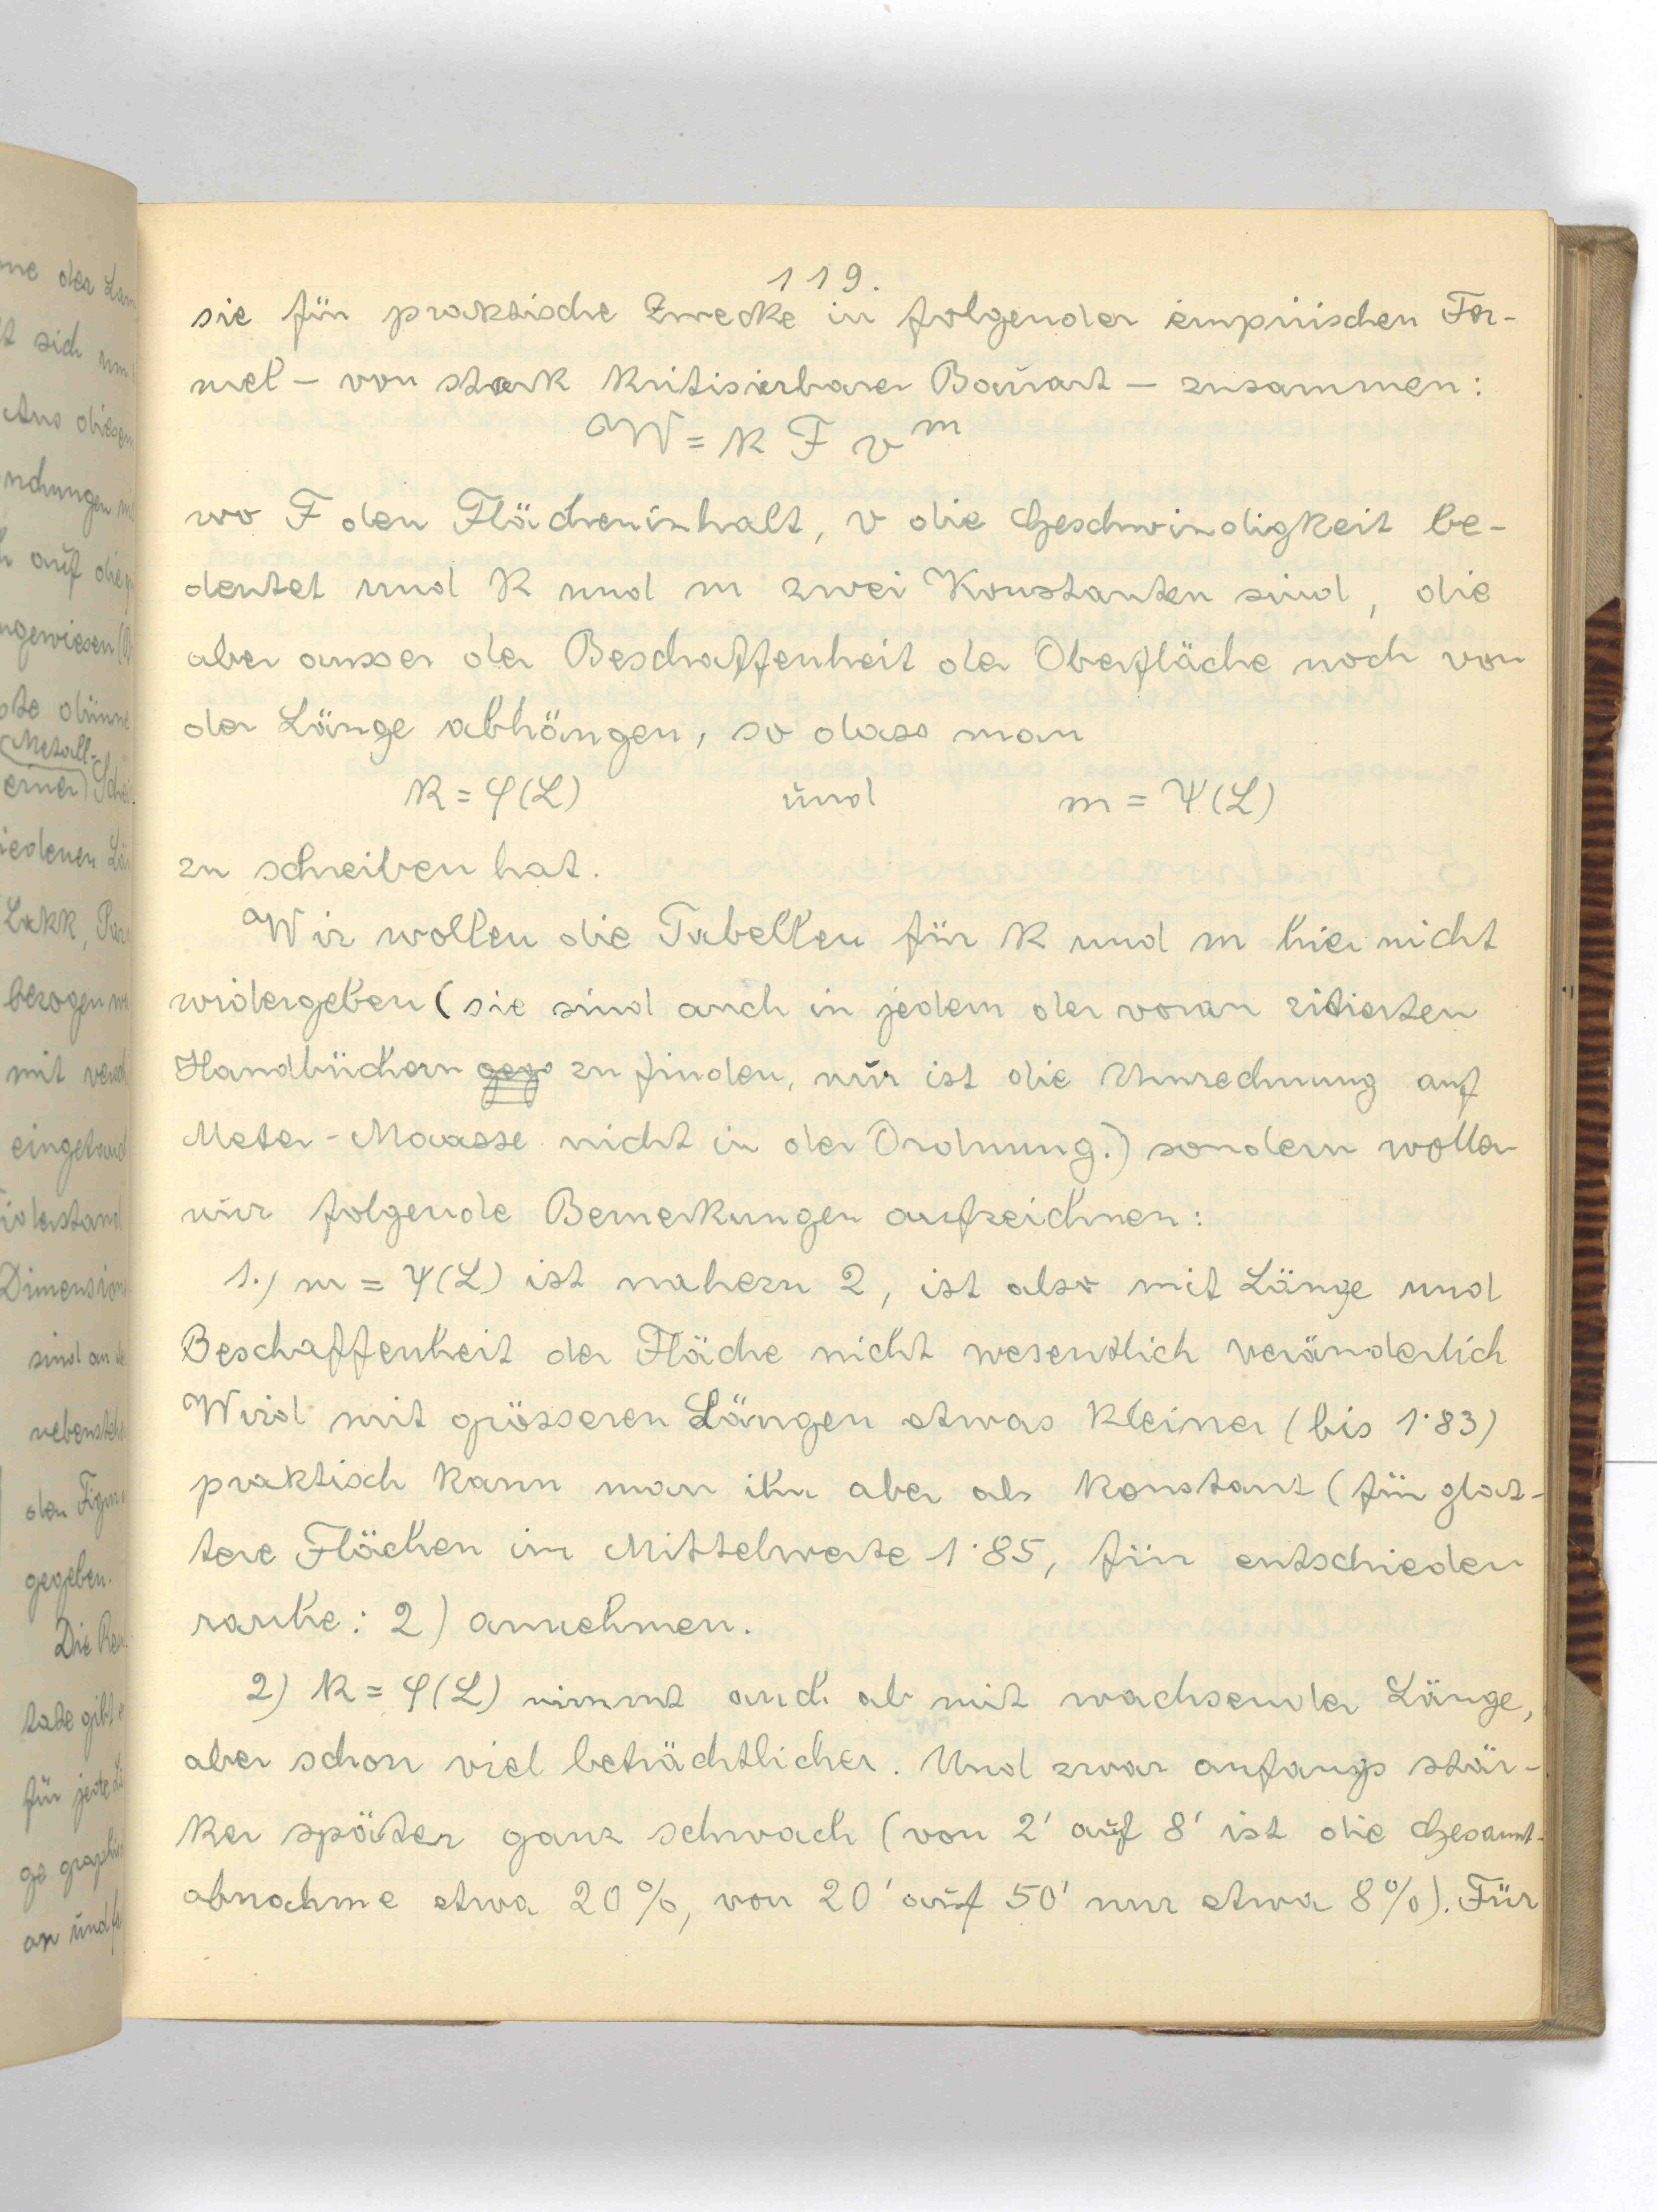 119.
sie für praktische Zwecke in folgender empirischen For-
mel – von stark kritisierbarer Bauart – zusammen:
W = k F v^m
wo F den Flächeninhalt, v die Geschwindigkeit be-
deutet und k und m zwei Konstanten sind, die
aber ausser der Beschaffenheit der Oberfläche noch von
der Länge abhängen, so dass man
k = φ(L) und m = ψ(L)
zu schreiben hat.
Wir wollen die Tabellen für k und m hier nicht
widergeben (sie sind auch in jedem der voran zitierten
Handbüchern zu finden, nur ist die Umrechnung auf
Meter-Maasse nicht in der Ordnung.) sondern wollen
nur folgende Bemerkungen aufzeichnen:
1.) m = ψ(L) ist nahezu 2, ist also mit Länge und
Beschaffenheit der Fläche nicht wesentlich veränderlich
Wird mit grösseren Längen etwas kleiner (bis 1·83)
praktisch kann man ihn aber als konstant (für glat-
tere Flächen im Mittelwerte 1·85, für entschieden
rauhe: 2) annehmen.
2) k = φ(L) nimmt auch ab mit wachsender Länge,
aber schon viel beträchtlicher. Und zwar anfangs stär-
ker später ganz schwach (von 2' auf 8' ist die Gesamt-
abnahme etwa 20%, von 20' auf 50' nur etwa 8%). Für